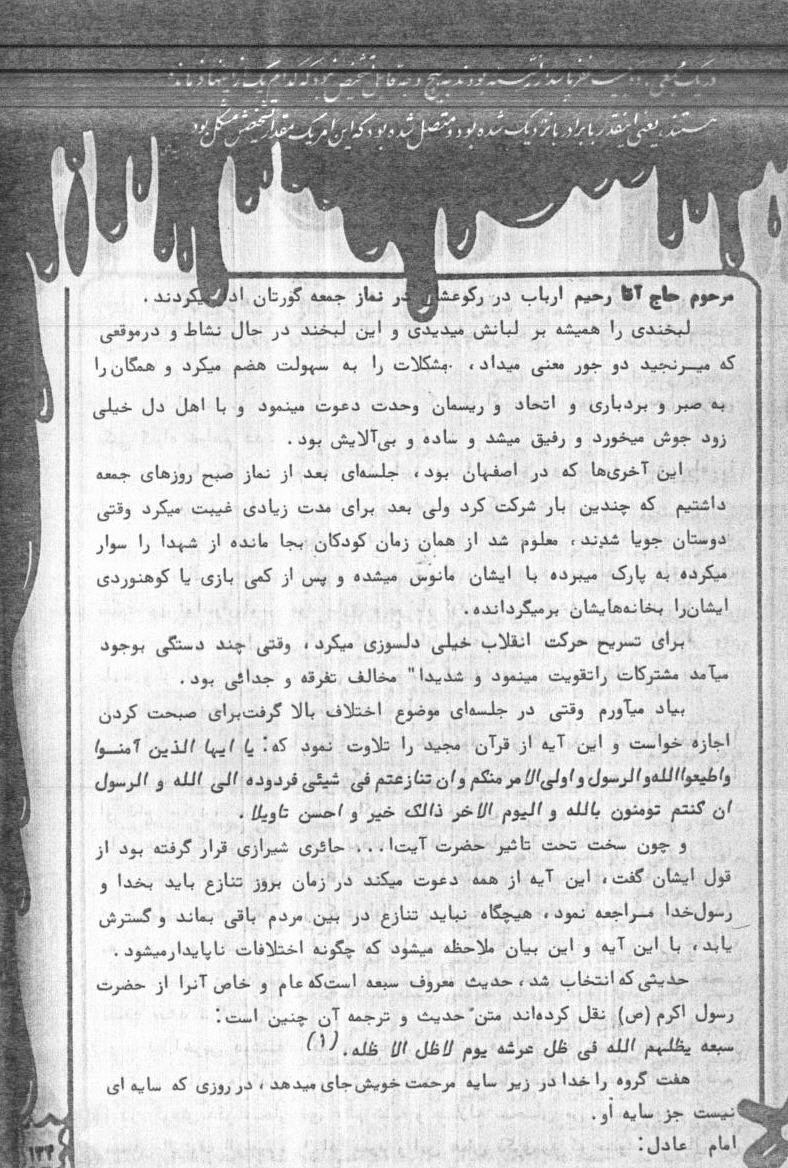 دریک جمعی دویست نفر پاسدار نشسته بودند به هیچ وجه قابل تشخیص نبود که کدام یک از اینها
هستند، یعنی اینقدر با برادر با نزدیک شده بود و متصل شده بود که این امر یک مقدار تشخیصش مشکل بود
مرحوم حاج آقا رحیم ارباب در رکوعشان در نماز جمعه گورتان ادا میکردند.
لبخندی را همیشه بر لبانش میدیدی و این لبخند در حال نشاط و درموقعی
که میـرنجید دو جور معنی میداد، مشکلات را به سهولت هضم میکرد و همگان را
به صبر و بردباری و اتحاد و ریسمان وحدت دعوت مینمود و با اهل دل خیلی
زود جوش میخورد و رفیق میشد و ساده و بی‌آلایش بود.
این آخری‌ها که در اصفهان بود، جلسه‌ای بعد از نماز صبح روزهای جمعه
داشتیم که چندین بار شرکت کرد ولی بعد برای مدت زیادی غیبت میکرد وقتی
دوستان جویا شدند، معلوم شد از همان زمان کودکان بجا مانده از شهدا را سوار
میکرده به پارک میبرده با ایشان مانوس میشده و پس از کمی بازی یا کوهنوردی
ایشان‌را بخانه‌هایشان برمیگردانده.
برای تسریح حرکت انقلاب خیلی دلسوزی میکرد، وقتی چند دستگی بوجود
میآمد مشترکات راتقویت مینمود و شدیدا" مخالف تفرقه و جدائی بود.
بیاد میآورم وقتی در جلسه‌ای موضوع اختلاف بالا گرفت‌برای صبحت کردن
اجازه خواست و این آیه از قرآن مجید را تلاوت نمود که: یا ایها الذین آمنـوا
واطیعواالله‌والرسول‌و اولی‌الامرمنکم‌وان تنازعتم فی شیئی فردوده الی الله و الرسول
ان کنتم تومنون بالله و الیوم الاخر ذالک خیر و احسن تاویلا.
و چون سخت تحت تاثیر حضرت آیت‌ا... حائری شیرازی قرار گرفته بود از
قول ایشان گفت، این آیه از همه دعوت میکند در زمان بروز تنازع باید بخدا و
رسول‌خدا مـراجعه نمود، هیچگاه نباید تنازع در بین مردم باقی بماند و گسترش
یابد، با این آیه و این بیان ملاحظه میشود که چگونه اختلافات ناپایدارمیشود.
حدیثی که انتخاب شد، حدیث معروف سبعه است‌که عام و خاص آنرا از حضرت
رسول اکرم (ص) نقل کرده‌اند متن حدیث و ترجمه آن چنین است:
سبعه یظلهم الله فی ظل عرشه یوم لاظل الا ظله. (۱)
هفت گروه را خدا در زیر سایه مرحمت خویش‌جای میدهد، در روزی که سایه ای
نیست جز سایه أو.
امام عادل:
۱۳۴